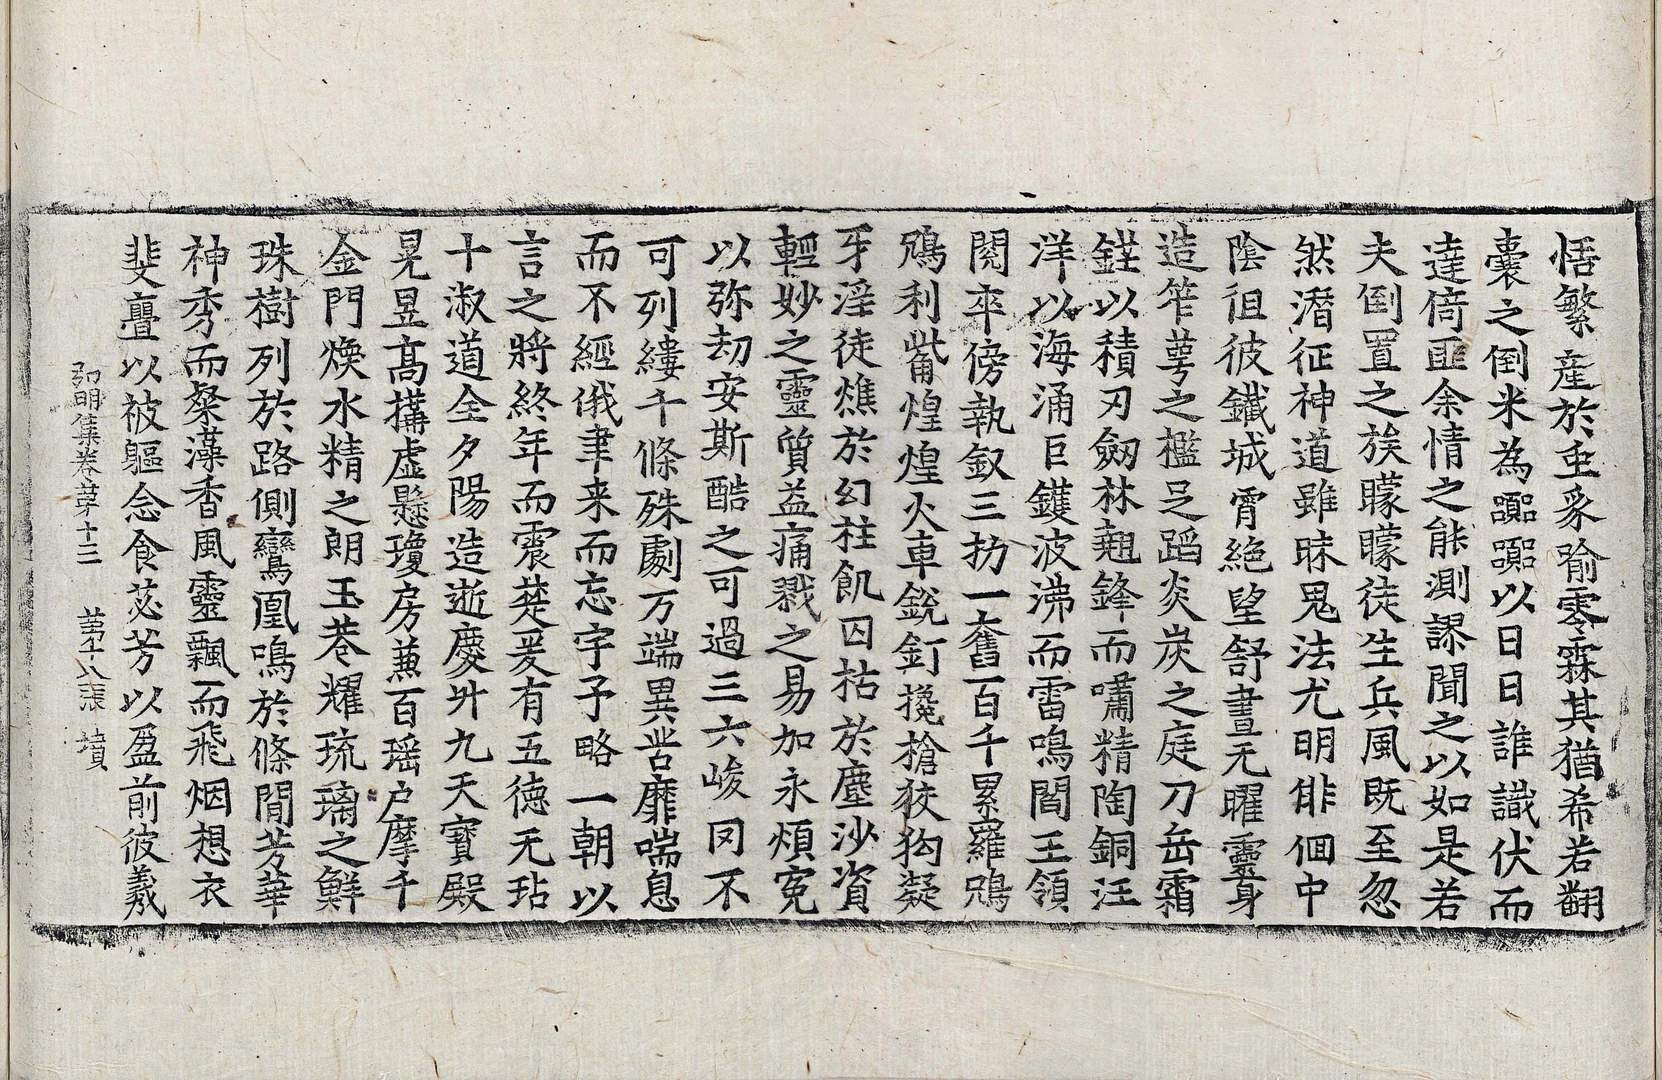 恬繁產於重豕喻零霖其猶希若翻
囊之倒米為𩐁𩐁以日日誰識伏而
達倚匪余情之能測謬聞之以如是若
夫倒置之族矇矇徒生兵風既至忽
然潛征神道雖昧鬼法尤明俳佪中
陰徂彼鐵城霄絕望舒晝无曜靈身
造笮萼之檻足蹈炎炭之庭刀岳霜
鋩以積刃劒林翹鋒而嘯精陶銅汪
洋以海涌巨鑊波沸而雷鳴閻王領
閱卒傍執釵三扮一奮百千累羅鴆
鴆利觜煌煌火車銳釘攙槍狡狗凝
牙淫徒燋於幻柱飢囚枯於塵沙資
輕妙之靈質益痛戮之易加永煩寃
以弥劫安斯酷之可過三六峻罔不
可列縷千條殊劇万端異苦靡喘息
而不經俄聿来而忘宇予略一朝以
言之將終年而震楚爰有五德无玷
十淑道全夕陽造逝慶升九天寶殿
晃昱高搆虛懸瓊房兼百瑶户摩千
金門煥水精之朗玉巷耀琉璃之鮮
珠樹列於路側鸞凰鳴於條閒芳華
神秀而粲藻香風靈飄而飛烟想衣
斐亹以被軀念食苾芳以盈前彼羲
弘明集卷第十三 第十八張 墳